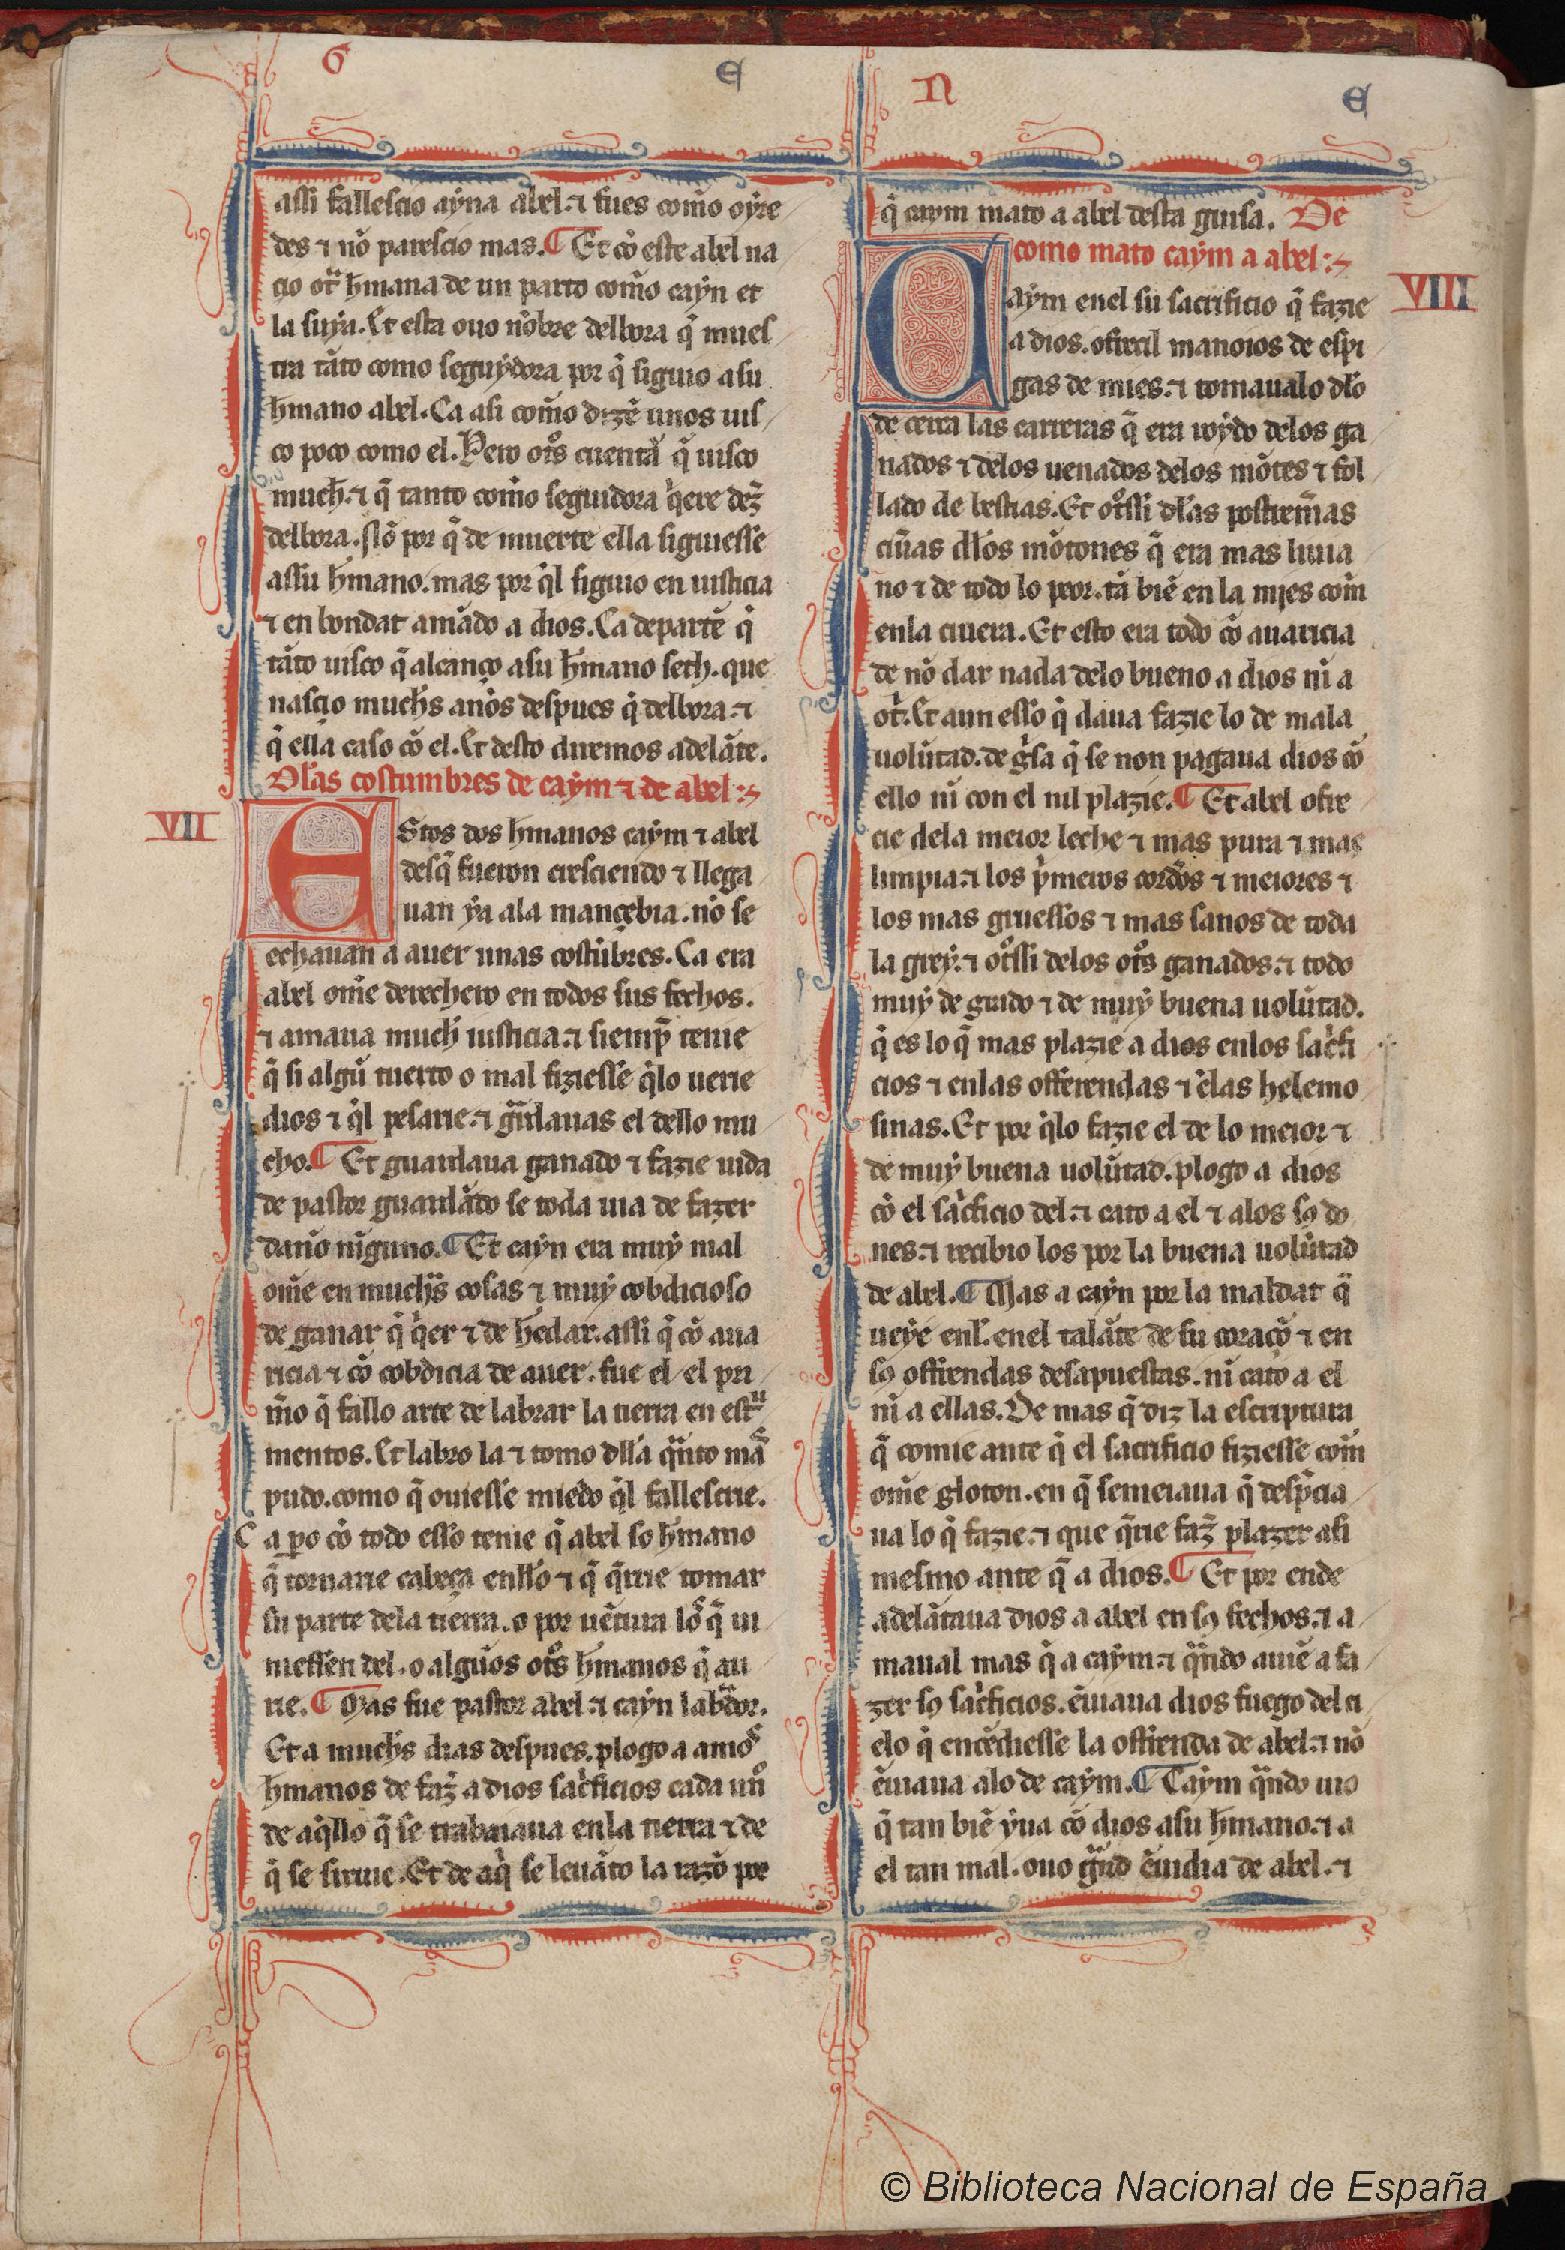 G E N E
assi fallescio ayna abel. ⁊ fues como oyre
des ⁊ nõ parescio mas. ¶ Et cõ este abel na
çio ot̃ h̃mana de un parto como cayn et
la suya. Et esta ouo nõbre delbora q̃ mues
tra tãto como seguydora por q̃ siguio a su
h̃mano abel. Ca asi como dizẽ unos uis
co poco como el. Pero ot̃s cuentã q̃ uisco
much̃. ⁊ q̃ tanto como seguidora q̃ere dez̃
delbora. slõ por q̃ de muerte ella siguiesse
assu h̃mano. mas por q̃l siguio en iusticia
⁊ en bondat amãdo a dios. Ca departẽ q̃
tãto uisco q̃ alcanço a su h̃mano seth. que
nasçio much̃s anõs despues q̃ delbora. ⁊
q̃ ella caso cõ el. Et desto diremos adelãte.
Dl̃as costumbres de caym ⁊ de abel :~
VII
EStos dos h̃manos caym ⁊ abel
desq̃ fueron cresciendo ⁊ llega
uan ya ala mançebia. nõ se
echauan a auer unas costũbres. Ca era
abel om̃e derechero en todos sus fechos.
⁊ amaua much̃ iusticia. ⁊ siemp̃ tenie
q̃ si algũ tuerto o mal fiziesse q̃lo uerie
dios ⁊ q̃l pesarie. ⁊ gũrdauas el dello mu
cho. ¶ Et guardaua ganado ⁊ fazie uida
de pastor guardãdo se toda uia de fazer
danõ nĩguno. ¶ Et cayn era muy mal
om̃e en much̃s cosas ⁊ muy cobdicioso
de ganar q̃ q̃er ⁊ de h̃edar. assi q̃ cõ aua
ricia ⁊ cõ cobdicia de auer. fue el el pri
m̃o q̃ fallo arte de labrar la tierra en estr̃u
mentos. Et labro la ⁊ tomo dlla q̃nto mã
pudo. como q̃ ouiesse miedo q̃l fallescrie.
Ca p̱o cõ todo esso tenie q̃ abel so h̃mano
q̃ tornarie cabeça enllo ⁊ q̃ q̃rrie tomar
su parte dela tierra. o por uẽtura lõ q̃ ui
niessen del. o algũos ot̃s h̃manos q̃ au
rie. ¶ Mas fue pastor abel. ⁊ cayn labr̃dor.
Et a much̃s dias despues. plogo a amos
h̃manos de faz̃ a dios sac̃ficios cada uñ
de aq̃llo q̃ se trabaiaua enla tierra ⁊ de
q̃ se siruie. Et de aq̃ se leuãto la razõ por
q̃ caym mato a abel desta guisa. De
como mato caym a abel :~
VIII
CAym enel su sacrificio q̃ fazie
a dios. ofrecil manoios de espi
gas de mies. ⁊ tomaualo dl̃o
de cerca las carreras q̃ era roydo delos ga
nados ⁊ delos uenados delos mõtes ⁊ fol
lado de bestias. Et ot̃ssi dl̃as postrem̃as
ciũas dl̃os mõtones q̃ era mas liuia
no ⁊ de todo lo peor. tã biẽ en la mies com̃
enla ciuera. Et esto era todo cõ auaricia
de nõ dar nada delo bueno a dios nĩ a
ot̃. Et aun esso q̃ daua fazie lo de mala
uolũtad. de g̃sa q̃ se non pagaua dios cõ
ello nĩ con el nil plazie. ¶ Et abel ofre
cie dela meior leche ⁊ mas pura ⁊ mas
limpia. ⁊ los p̃meros cord̃os ⁊ meiores ⁊
los mas gruessos ⁊ mas sanos de toda
la grey. ⁊ ot̃ssi delos ot̃s ganados. ⁊ todo
muy de grado ⁊ de muy buena uolũtad.
q̃ es lo q̃ mas plazie a dios enlos sac̃fi
cios ⁊ enlas offrendas ⁊ ẽlas helemo
sinas. Et por q̃lo fazie el de lo meior ⁊
de muy buena uolũtad. plogo a dios
cõ el sac̃ficio del. ⁊ cato a el ⁊ alos sꝯ do
nes. ⁊ recibio los por la buena uolũtad
de abel. ¶ Mas a cayn por la maldat q̃
ueye enl̃. enel talãte de su coraçõ ⁊ en
sꝯ offrendas desapuestas. nĩ cato a el
nĩ a ellas. De mas q̃ diz la escriptura
q̃ comie ante q̃ el sacrificio fiziesse com̃
om̃e gloton. en q̃ semeiaua q̃ desp̃cia
ua lo q̃ fazie. ⁊ que q̃rie faz̃ plazer asi
mesmo ante q̃ a dios. ¶ Et por ende
adelãtaua dios a abel en sꝯ fechos. ⁊ a
maual mas q̃ a caym. ⁊ q̃ndo auiẽ a fa
zer sꝯ sac̃ficios. ẽuiaua dios fuego del ci
elo q̃ encẽdiesse la offrenda de abel. ⁊ nõ
ẽuiaua alo de caym. ¶ Caym q̃ndo uio
q̃ tan biẽ yua cõ dios asu h̃mano. ⁊ a
el tan mal. ouo g̃nd ẽuidia de abel. ⁊
© Biblioteca Nacional de España